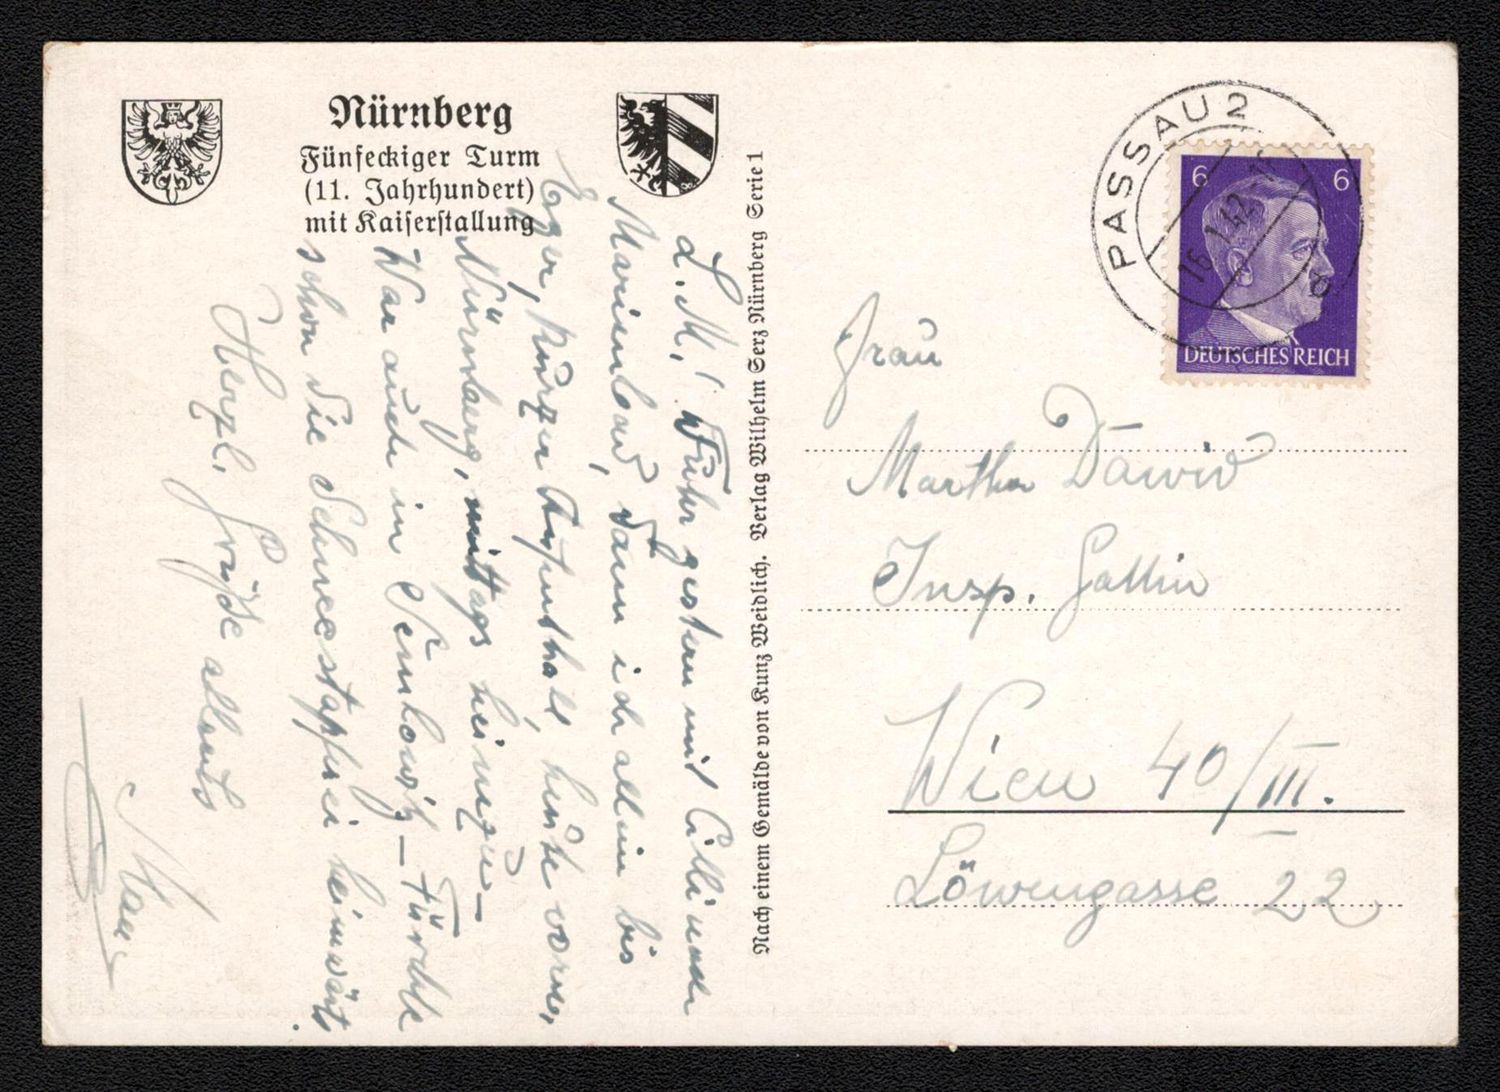 Nürnberg
Fünfeckiger Turm
(11. Jahrhundert)
mit Kaiserstallung
L. M.! Fuhr gestern mit Cilli nach
Marienbad, dann ich allein bis
Eger, kurzer Aufenthalt, heute vorm.
Nürnberg, mittags heimzu —
War auch in — Fürchte
schon die Schneestapferei heimwärts
Herzl. Grüße allseits
Nach einem Gemälde von Kunz Weidlich. Verlag Wilhelm Gerz Nürnberg Serie 1
PASSAU 2
16.1.42
a
6
6
DEUTSCHES REICH
Frau
Martha David
Insp. Gattin
Wien 40/III.
Löwengasse 22